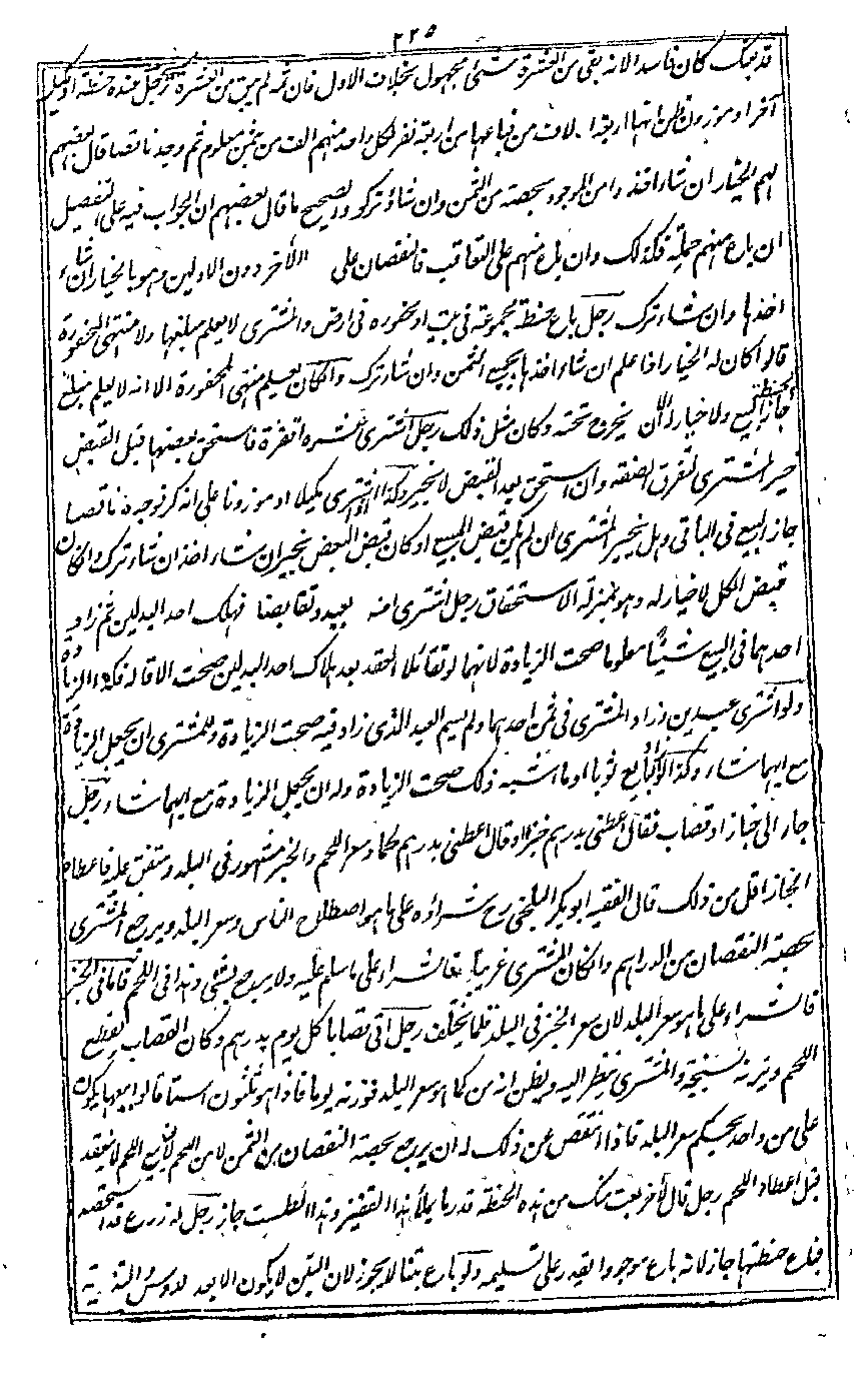 ٢٢٥
كان فاسدا لانه بقى من العشرة شئ مجهول بخلاف الاول فان ثمه لم يبق من العشرة رجل عنده حنطة او كيلى
آخر او موزون ظن انها اربعة الاف من فباعها من اربعة نفر لكل واحد منهم الف من بثمن معلوم ثم وجدنا قصا قال بعضهم
لهم الخيار ان شاؤا اخذوا من الموجود بحصته من الثمن وان شاؤا تركوا والصحيح ما قال بعضهم ان الجواب فيه على التفصيل
ان باع منهم جملة فكذلك وان باع منهم على التعاقب فالنقصان على الآخر دون الاولين وهو بالخيار ان شاء
اخذها وان شاء ترك رجل باع حنطة مجموعة فى بيت او محفورة فى ارض والمشترى لا يعلم مبلغها ولا منتهى المحفورة
قالوا كان له الخيار اذا علم ان شاء اخذها بجميع الثمن وان شاء ترك وان كان يعلم منتهى المحفورة الا انه لا يعلم مبلغ الحنطة
جاز البيع ولا خيار له الا ان يخرج تحته دكان مثل ذلك رجل اشترى عشرة اقفزة فاستحق بعضها قبل القبض
خير المشترى لتفرق الصفقة وان استحق بعد القبض لا يخير وكذا لو اشترى مكيلا او موزونا على انه كر فوجده ناقصا
جاز البيع فى الباقى وهل يتخير المشترى ان لم يكن قبض المبيع او كان قبض البعض يتخير ان شاء اخذ وان شاء ترك وان كان
قبض الكل لا خيار له وهو بمنزلة الاستحقاق رجل اشترى امة بعبد وتقابضا فهلك احد البدلين ثم زاد
احدهما فى البيع شيئا معلوما صحت الزيادة لانهما لو تقائلا العقد بعد هلاك احد البدلين صحت الاقالة فكذا الزيادة
ولو اشترى عبدين وزاد المشترى فى ثمن احدهما ولم يسم العبد الذى زاد فيه صحت الزيادة وللمشترى ان يجعل الزيادة
مع ايهما شاء وكذا لو زاد البائع ثوبا او ما اشبه ذلك صحت الزيادة وله ان يجعل الزيادة مع ايهما شاء رجل
جاء الى خباز او قصاب فقال اعطنى بدرهم خبزا او قال اعطنى بدرهم لحما وسعر اللحم والخبز مشهور فى البلد ومتفق عليه فاعطاه
الخباز اقل من ذلك قال الفقيه ابو بكر البلخى رح شراؤه على ما هو اصطلاح الناس وسعر البلد ويرجع المشترى
بحصة النقصان من الدراهم وان كان المشترى غريبا فالشراء على ما سلم عليه ولا يرجع بشئ وهذا فى اللحم فاما فى الخبز
فالشراء على ما هو سعر البلد لان سعر الخبز فى البلد قلما يختلف رجل اتى قصابا كل يوم بدرهم وكان القصاب يقطع
اللحم ويزنه بسنجة والمشترى ينظر اليه ويظن انه من كما هو سعر البلد فوزنه يوما فاذا هو ثلثون استا قالوا بيعهما يكون
على من واحد بحكم سعر البلد فاذا انتقص عن ذلك له ان يرجع بحصة النقصان من الثمن لا من اللحم لان بيع اللحم لا ينعقد
قبل اعطاء اللحم رجل قال لآخر بعت منك من هذه الحنطة قدر ما يملأ هذا القفيز وهذا الطست جاز رجل له زرع قد استحصد
فباع حنطتها جاز لانه باع موجودا يقدر على تسليمه ولو باع تبنا لا يجوز لان التبن لا يكون الا بعد الدوس والتذرية